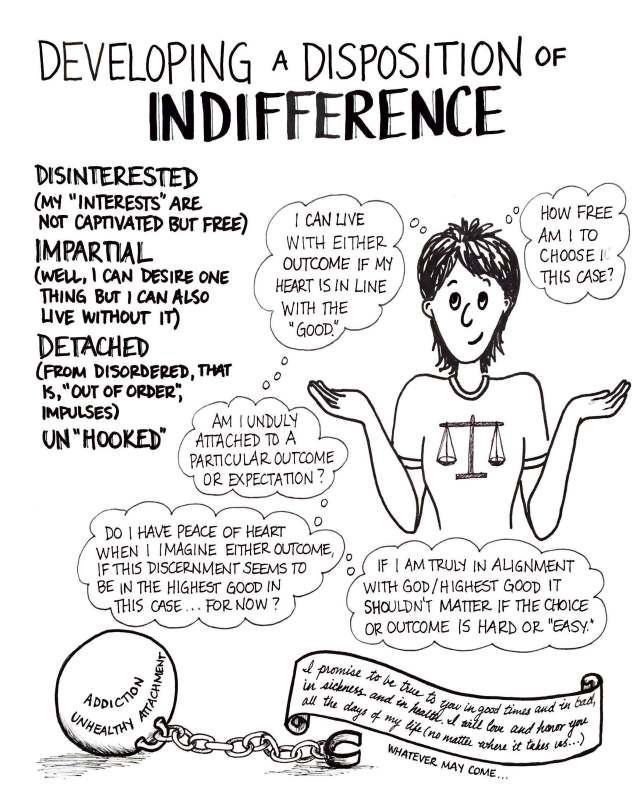 DEVELOPING A DISPOSITION OF
INDIFFERENCE
DISINTERESTED
(MY "INTERESTS" ARE
NOT CAPTIVATED BUT FREE)
IMPARTIAL
(WELL, I CAN DESIRE ONE
THING BUT I CAN ALSO
LIVE WITHOUT IT)
DETACHED
(FROM DISORDERED, THAT
IS, "OUT OF ORDER",
IMPULSES)
UN "HOOKED"
I CAN LIVE
WITH EITHER
OUTCOME IF MY
HEART IS IN LINE
WITH THE
"GOOD."
HOW FREE
AM I TO
CHOOSE I
THIS CASE?
AM I UNDULY
ATTACHED TO A
PARTICULAR OUTCOME
OR EXPECTATION?
DO I HAVE PEACE OF HEART
WHEN I IMAGINE EITHER OUTCOME,
IF THIS DISCERNMENT SEEMS TO
BE IN THE HIGHEST GOOD IN
THIS CASE... FOR NOW?
IF I AM TRULY IN ALIGNMENT
WITH GOD/HIGHEST GOOD IT
SHOULDN'T MATTER IF THE CHOICE
OR OUTCOME IS HARD OR "EASY."
ADDICTION
UNHEALTHY ATTACHMENT
I promise to be true to you in good times and in bad,
in sickness and in health. I will love and honor you
all the days of my life (no matter where it takes us...)
WHATEVER MAY COME...